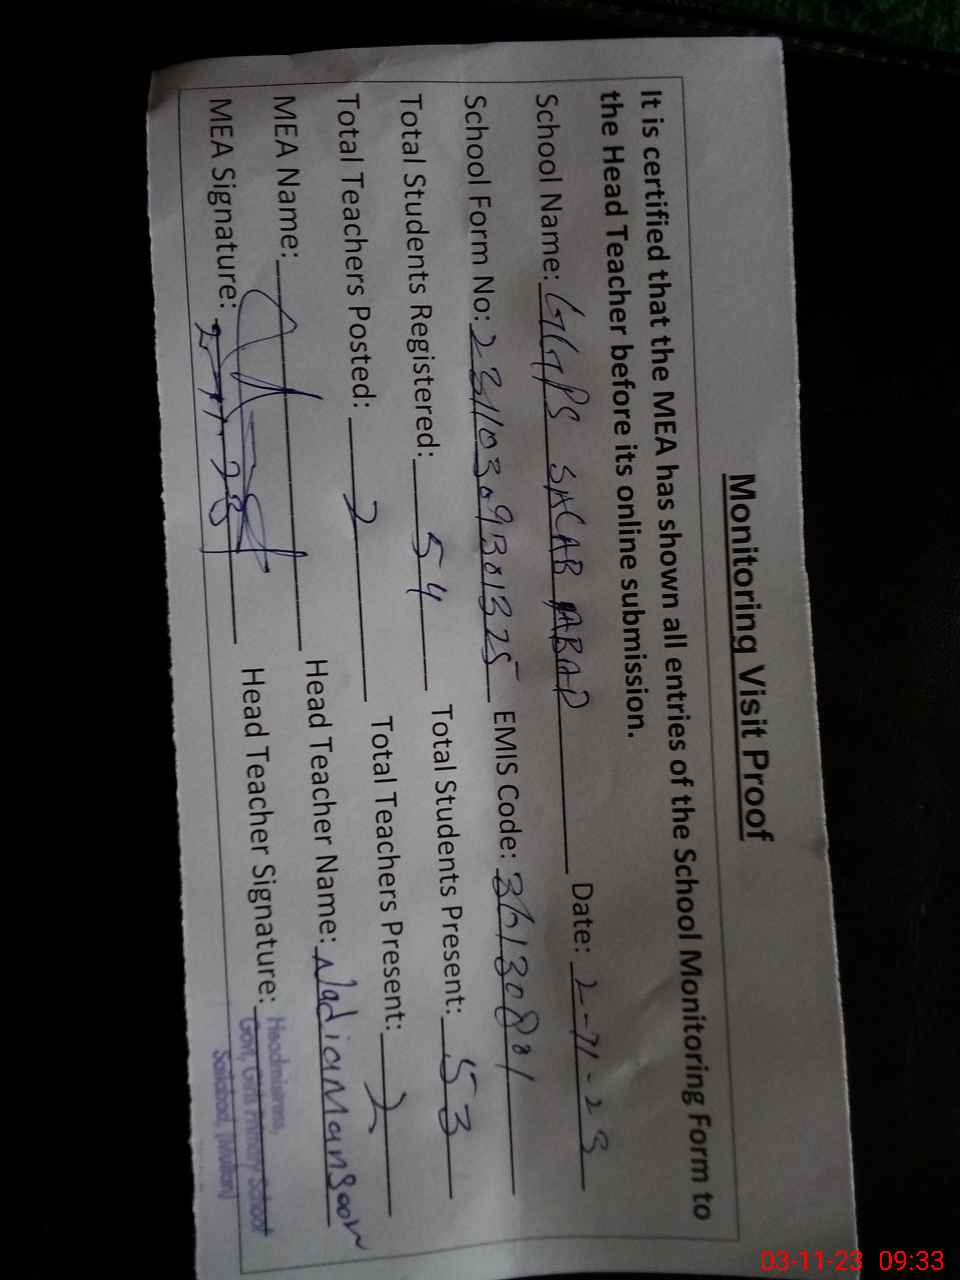 Monitoring Visit Proof
It is certified that the MEA has shown all entries of the School Monitoring Form to
the Head Teacher before its online submission.
School Name: GGPS Date: 2-11-23
School Form No: 23110309301325 EMIS Code: 36130801
Total Students Registered: 54 Total Students Present: 53
Total Teachers Posted: 2 Total Teachers Present: 2
MEA Name: Head Teacher Name: Nadia Mansoor
MEA Signature: Head Teacher Signature:
Headmistress,
Govt, Girls Primary School
03-11-23 09:33